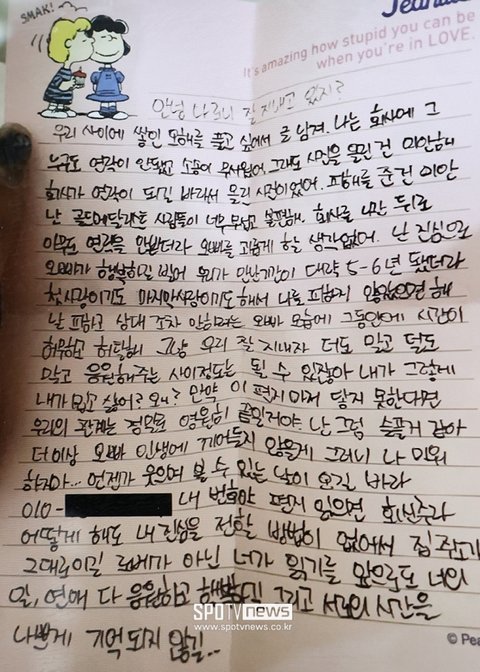 SMAK!
Peanuts
It's amazing how stupid you can be
when you're in LOVE.
안녕 나르니 잘 지내고 있지?
우리 사이에 쌓인 오해를 풀고 싶어서 글 남겨. 나는 회사에 그
누구도 연락이 안됐고 소송이 무서웠어. 그래도 사진을 올린 건 미안해
회사가 연락이 되길 바라서 올린 사진이었어. 피해를 준건 미안
난 골드메달리스트 사람들이 너무 무섭고 불편해. 회사를 나간 뒤로
아무도 연락을 안받더라 오빠를 괴롭게 할 생각없어. 난 진심으로
오빠가 행복하길 빌어 우리가 만난기간이 대략 5-6년 됐더라
첫사랑이기도 마지막사랑이기도 해서 나를 피하지 않았으면 해
날 피하고 상대 조차 안하려는 오빠 모습에 그동안에 시간이
허무하고 허탈해 그냥 우리 잘 지내자 더도 말고 덜도
말고 응원해주는 사이정도는 될 수 있잖아 내가 그렇게
내가 밉고 싫어? 왜? 만약 이 편지마저 닿지 못한다면
우리의 관계는 정말로 영원히 끝일거야 난 그럼 슬플거 같아
더이상 오빠 인생에 끼어들지 않을게 그러니 나 미워
하지마... 언젠가 웃으며 볼 수 있는 날이 오길 바라
010- 내 번호야 편지 읽으면 회신주라
어떻게 해도 내 진심을 전할 방법이 없어서 집 주소가
그대로이길 로베가 아닌 너가 읽기를 앞으로도 너의
일, 연애 다 응원하고 행복하고 그리고 서로의 시간을
나쁘게 기억되지 않길..
SPOTV news
www.spotvnews.co.kr
© Pea